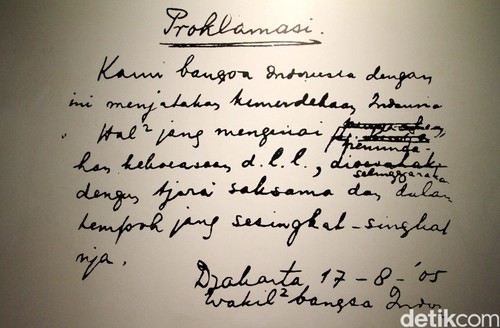 Proklamasi.
Kami bangsa Indonesia dengan
ini menjatakan kemerdekaan Indones
Hal² jang mengenai
peminda-
han kekoeasaan d.l.l.,
diselenggarakan
dengan tjara saksama dan dalam
tempoh jang sesingkat-singkat
nja.
Djakarta 17-8-'05
Wakil² bangsa Indon
detikcom